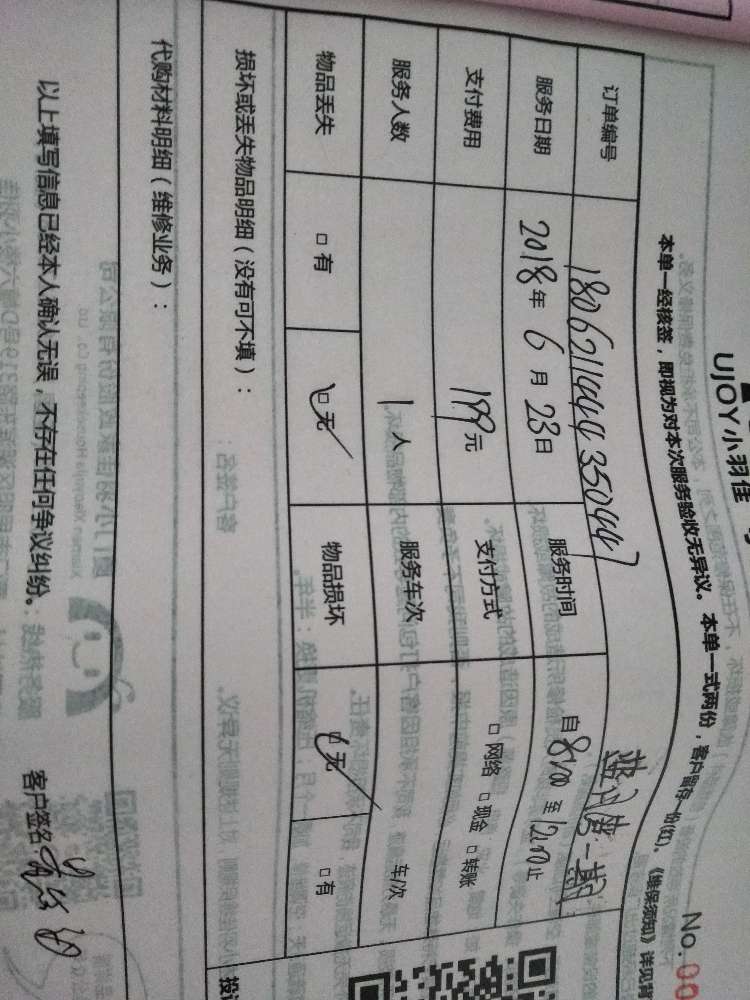 UJOY小羽佳
No.
本单一经核签，即视为对本次服务验收无异议。本单一式两份，客户留存一份(红)。《维保须知》详见背
订单编号 180621144435044 7
服务日期 2018年 6月 23日 服务时间 自8:00至12:00止
支付费用 199元 支付方式 □网络 □现金 □转账
服务人数 1人 服务车次 车/次
物品丢失 □有 □无 物品损坏 □无 □有
损坏或丢失物品明细（没有可不填）：
代购材料明细（维修业务）：
以上填写信息已经本人确认无误，不存在任何争议纠纷。 客户签名：